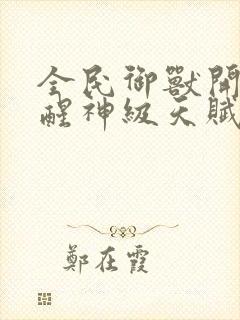 全民御獸開
醒神級天賦
鄭在霞